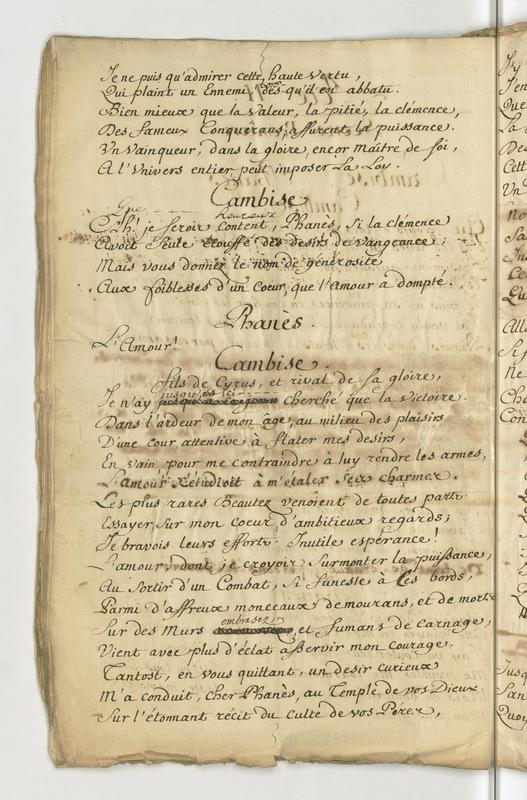 Je ne puis qu'admirer cette haute vertu,
Qui plaint un Ennemi dès qu'il est abbatu.
Bien mieux que la Valeur, la pitié, la clémence,
Des fameux Conquérans, assurent la puissance.
Un Vainqueur, dans la gloire, encor Maître de soi,
A l'Univers entier peut imposer La Loy.
Cambise
Que heureux
Ah! je serois content, Phanès, si la clémence
Avoit seule étouffé des desirs de vangeance;
Mais vous donnez le nom de générosité
Aux foiblesses d'un Coeur, que l'Amour a dompté.
Phanès.
L'Amour!
Cambise.
fils de Cyrus, et rival de sa gloire,
jusqu'ici
Je n'ay cherché que la Victoire.
Dans l'ardeur de mon âge, au milieu des plaisirs
D'une cour attentive à flater mes desirs,
En vain pour me contraindre à luy rendre les armes,
L'amour s'étudioit à m'étaler ses charmes.
Les plus rares Beautez venoient de toutes parts
Essayer sur mon coeur d'ambitieux regards;
Je bravois leurs efforts. Inutile espérance!
L'amour, dont je croyois surmonter la puissance,
Au sortir d'un Combat, si funeste à Ces bords,
Parmi d'affreux monceaux de mourans, et de morts
embrasez
Sur des Murs et fumans de Carnage,
Vient avec plus d'éclat asservir mon courage.
Tantost, en vous quittant, un desir curieux
M'a conduit, cher Phanès, au Temple de vos Dieux.
Sur l'étonnant récit du Culte de vos Pères,